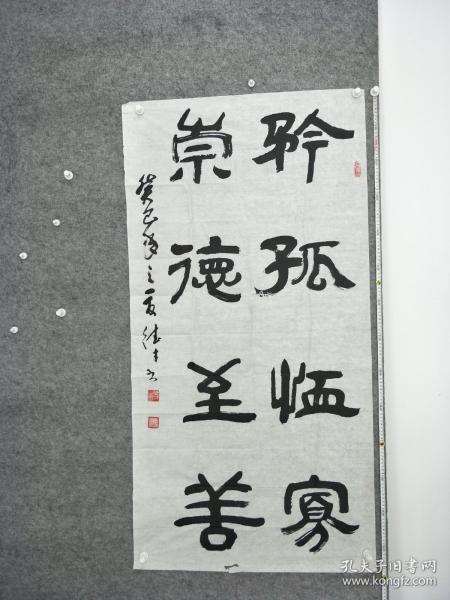 矜孤恤寡
崇德至善
癸巳年之夏
孔夫子旧书网
www.kongfz.com